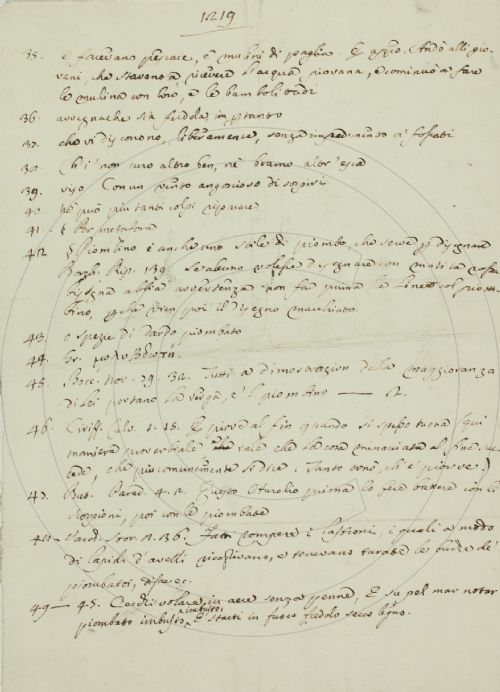 1219
35. e facevano pescaie, e mulini di paglia. E appr.o Andò alli gio-
vani, che stavano a ricever l'acqua piovana, e cominciò a fare
le mulina con loro, e le bamboli
36. avvegnachè sia fredda, in pertanto
37. che vi discorrono, liberamente, senza impedimento a' fossati
38. Ch' i' non curo altro ben, nè bramo altr' esca
39. viso Con un vento angoscioso di sospiri
40. Nè può più tanti colpi riparare
41. § Per metafora
42. § Piombino è anche uno stile di piombo, che serve p. disegnare
Borgh. Rip. 139. Se alcuno volesse disegnare con matita rossa
bisogna abbia avvertenza non far prima le linee col piom-
bino, perchè vien poi il disegno macchiato.
43. o spezie di dardo piombato
44. Gr.
45. Bocc. Nov. 79. 32. Tutti a dimostrazion della maggioranza
di lei portano la verga, e 'l piombino — R.
46. Ciriff. Calv. 1. 15. E piove al fin quando si spesso tuona (qui
maniera proverbiale vale che la cosa minacciata al fine suc-
cede, che più comunemente si dice. Tanto tonò ch' e' piovve.)
47. But. Parad. 4. 2. Questo Aurelio prima lo fece battere con li
scorpioni, poi con le piombate
48. Sard. Stor. 2. 36. Fatti rompere i cassioni, i quali a modo
di lapidi d'avelli ricoprivano, e tenevano turate le buche de'
piombatoi, disse ec.
49 — 45. Credi volare in aere senza penne, E su pel mar notar
piombato imbusto, imbusto, E starti in fuoco freddo secco legno.